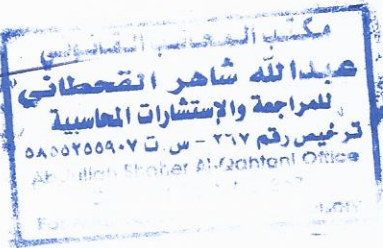 مكتب المحاسب القانوني
عبدالله شاهر القحطاني
للمراجعة والإستشارات المحاسبية
ترخيص رقم ٢٦٧ - س.ت ٥٨٥٥٢٥٥٩٠٧
Abdullah Shaher Al-Qahtani Office
For